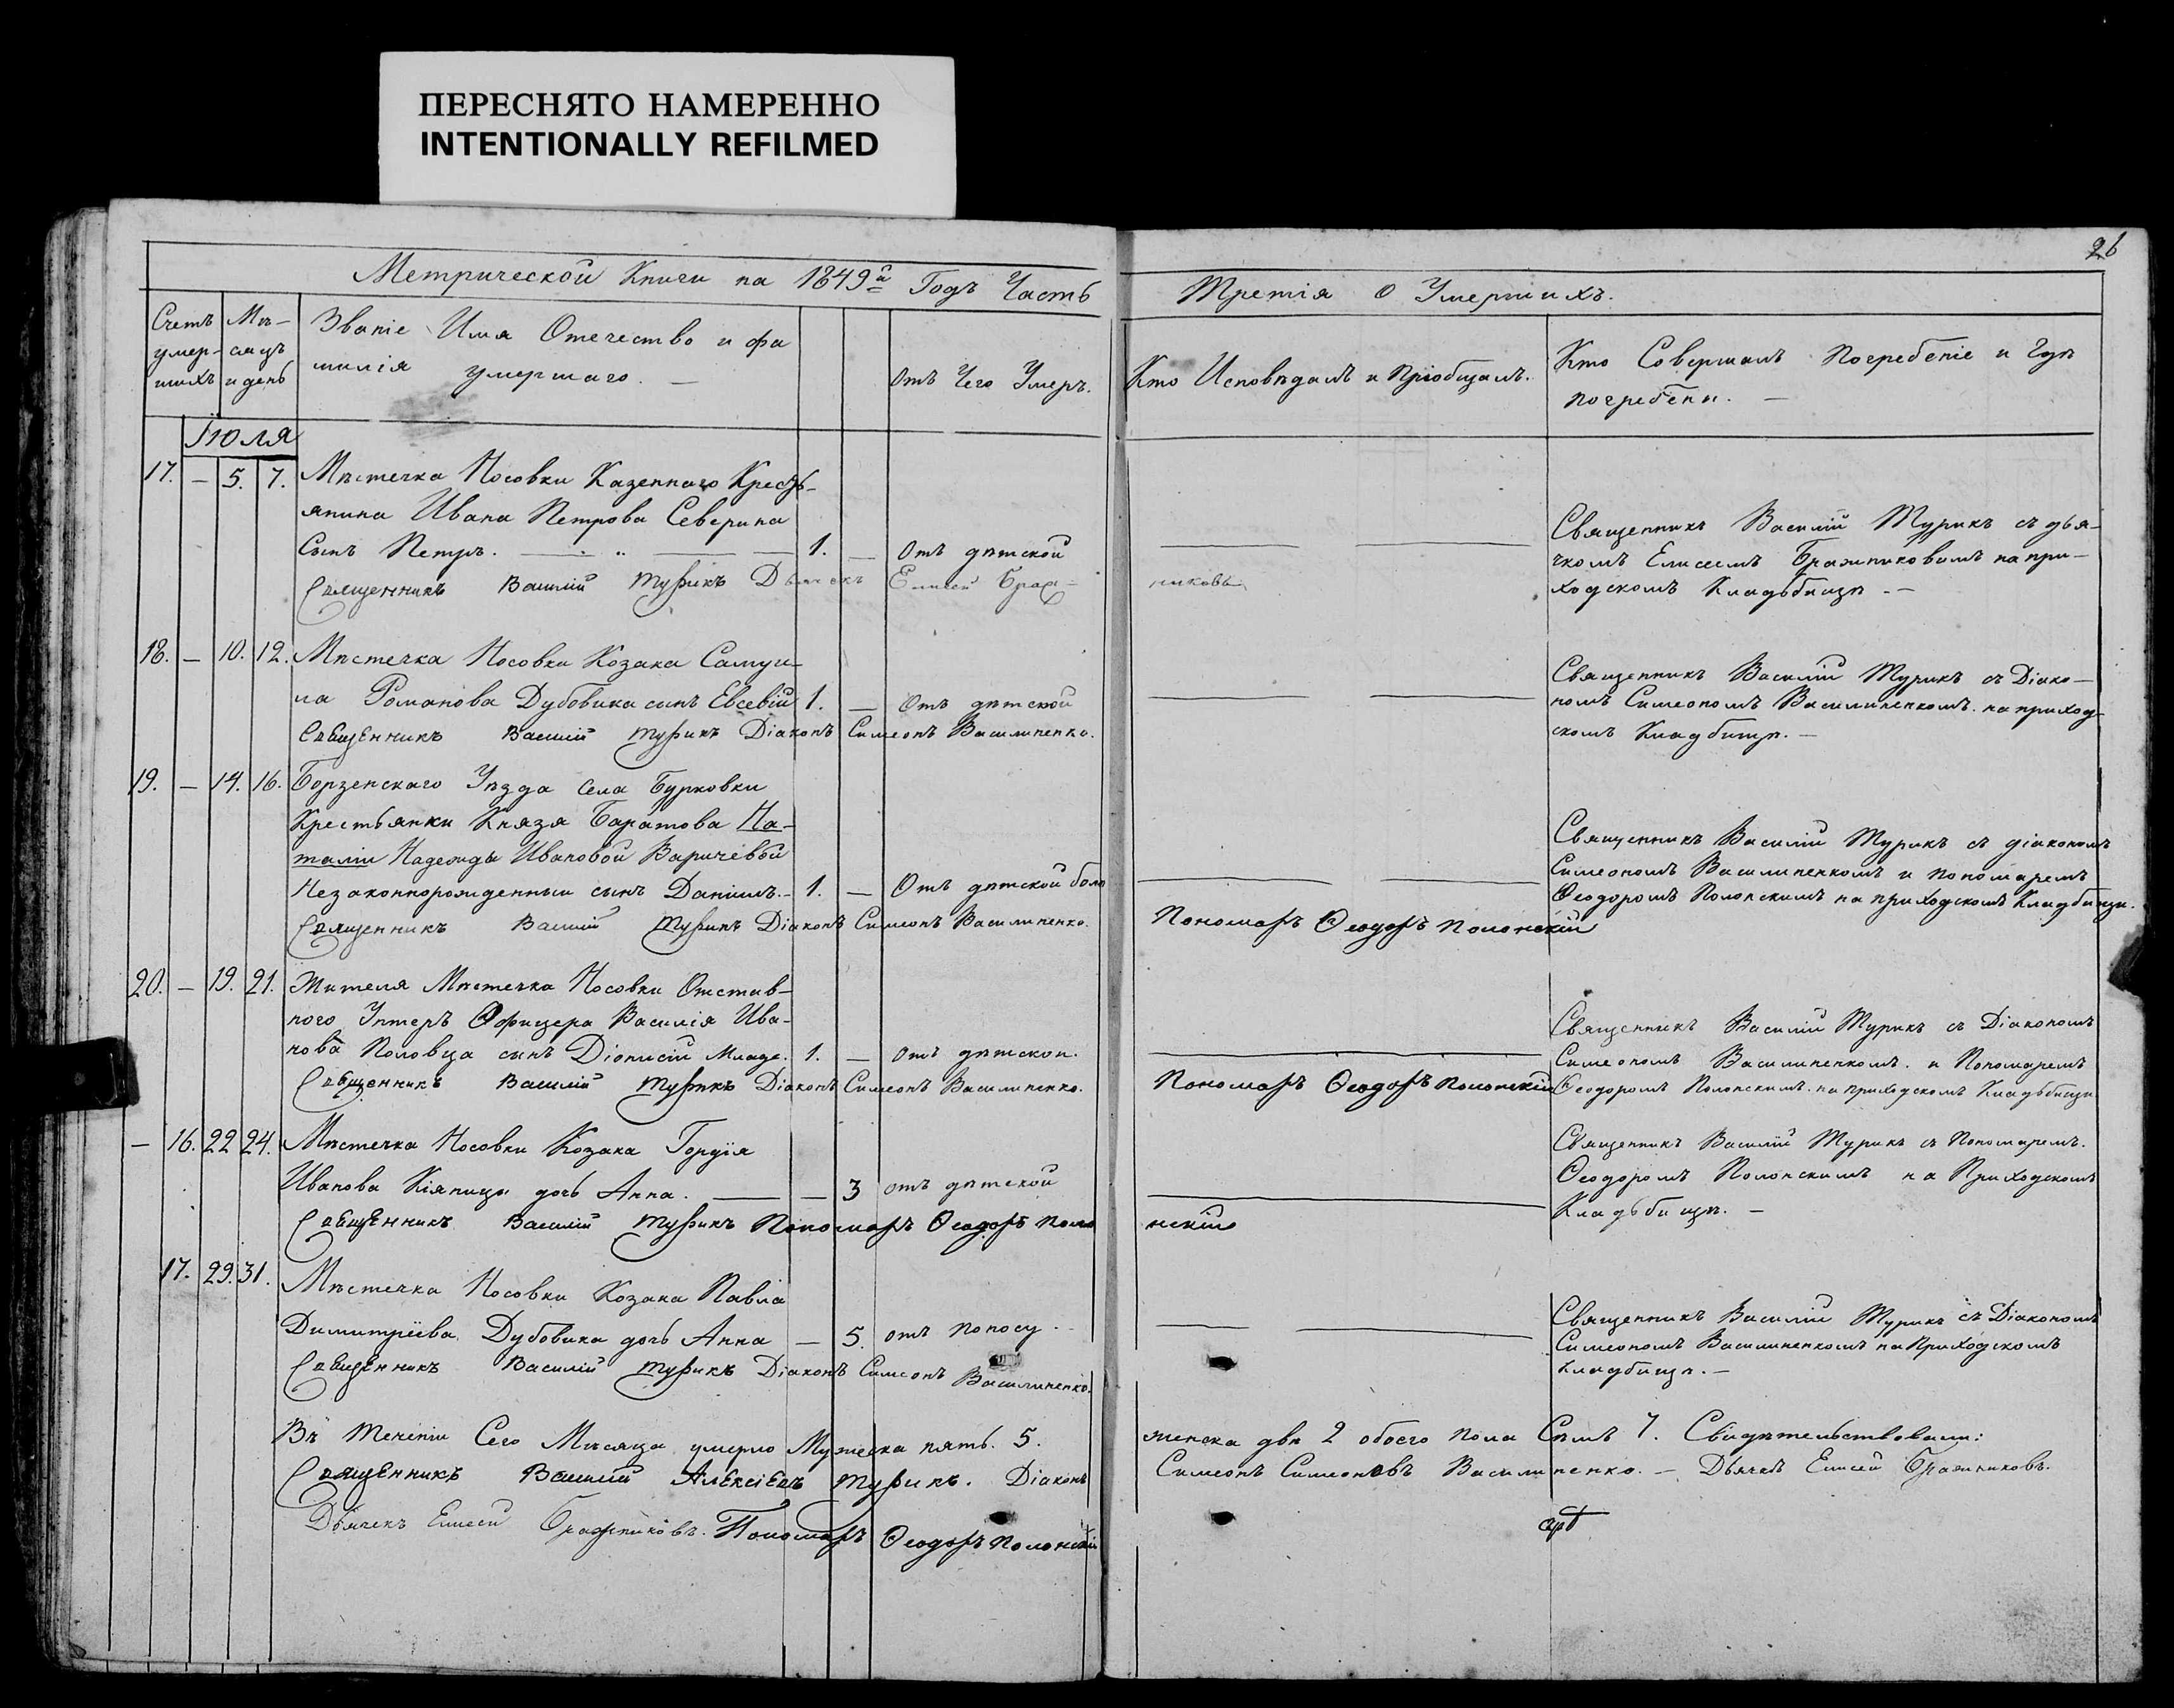 ПЕРЕСНЯТО НАМЕРЕННО
INTENTIONALLY REFILMED
26
Метрической Книги на 1849й Годъ Часть
Третія О Умершихъ.
Счетъ умер-шихъ
Мѣ-сяцъ и день
Званіе Имя Отечество и фа
милія умершаго. —
Отъ Чего Умеръ.
Кто Исповѣдалъ и Пріобщалъ.
Кто Совершалъ Погребеніе и Гдѣ
погребены. —
Іюля
17. — 5. 7. Мѣстечка Носовки Казеннаго Кресть-
янина Ивана Петрова Северина
Сынъ Петръ. — 1. — Отъ дѣтской
Священникъ Василій Турикъ Дьячекъ Елисей Браж-
никовъ
Священникъ Василій Турикъ съ дья-
чкомъ Елисеемъ Бражниковымъ на при-
ходскомъ Кладьбищѣ. —
18. — 10. 12. Мѣстечка Носовки Козака Самуи-
ла Романова Дубовика сынъ Евсевій 1. — Отъ дѣтской
Священникъ Василій Турикъ Діаконъ Симеонъ Василиненко.
Священникъ Василій Турикъ съ Діако-
номъ Симеономъ Василиненкомъ. на приход-
скомъ Кладбищѣ. —
19. — 14. 16. Борзенскаго Уѣзда Села Бурковки
Крестьянки Князя Баратова На-
таліи Надежды Ивановой Варичевой
Незаконнорожденный сынъ Даніилъ. — 1. — Отъ дѣтской боли
Священникъ Василій Турикъ Діаконъ Симеонъ Василиненко.
Пономарь Ѳеодоръ Полонскій
Священникъ Василій Турикъ съ діакономъ
Симеономъ Василиненкомъ и пономаремъ
Ѳеодоромъ Полонскимъ на приходскомъ Кладбищѣ.
20. — 19. 21. Жителя Мѣстечка Носовки Отстав-
ного Унтеръ Офицера Василія Ива-
нова Половца сынъ Діонисій младе. 1. — отъ дѣтской.
Священникъ Василій Турикъ Діаконъ Симеонъ Василиненко.
Пономарь Ѳеодоръ Полонскій
Священникъ Василій Турикъ съ Діакономъ
Симеономъ Василиненкомъ. и Пономаремъ
Ѳеодоромъ Полонскимъ. на приходскомъ Кладьбищѣ
— 16. 22 24. Мѣстечка Носовки Козака Гордія
Иванова Кіяницы дочь Анна. — 3 отъ дѣтской
Священникъ Василій Турикъ Пономарь Ѳеодоръ Поло
нскій
Священникъ Василій Турикъ съ Пономаремъ.
Ѳеодоромъ Полонскимъ на Приходскомъ
Кладьбищѣ. —
17. 29. 31. Мѣстечка Носовки Козака Павла
Димитріева Дубовика дочь Анна — 5. отъ поносу.
Священникъ Василій Турикъ Діаконъ Симеонъ Василиненко.
Священникъ Василій Турикъ съ Діакономъ
Симеономъ Василиненкомъ на Приходскомъ
кладбищѣ. —
Въ Теченіи Сего Мѣсяца умерло Мужеска пять. 5.
женска двѣ 2 обоего пола Семъ 7. Свидѣтельствовали:
Священникъ Василій Алексіевъ Турикъ. Діаконъ
Симеонъ Симеоновъ Василиненко. — Дьячекъ Елисей Бражниковъ.
Дьячекъ Елисей Бражниковъ. Пономарь Ѳеодоръ Полонскій